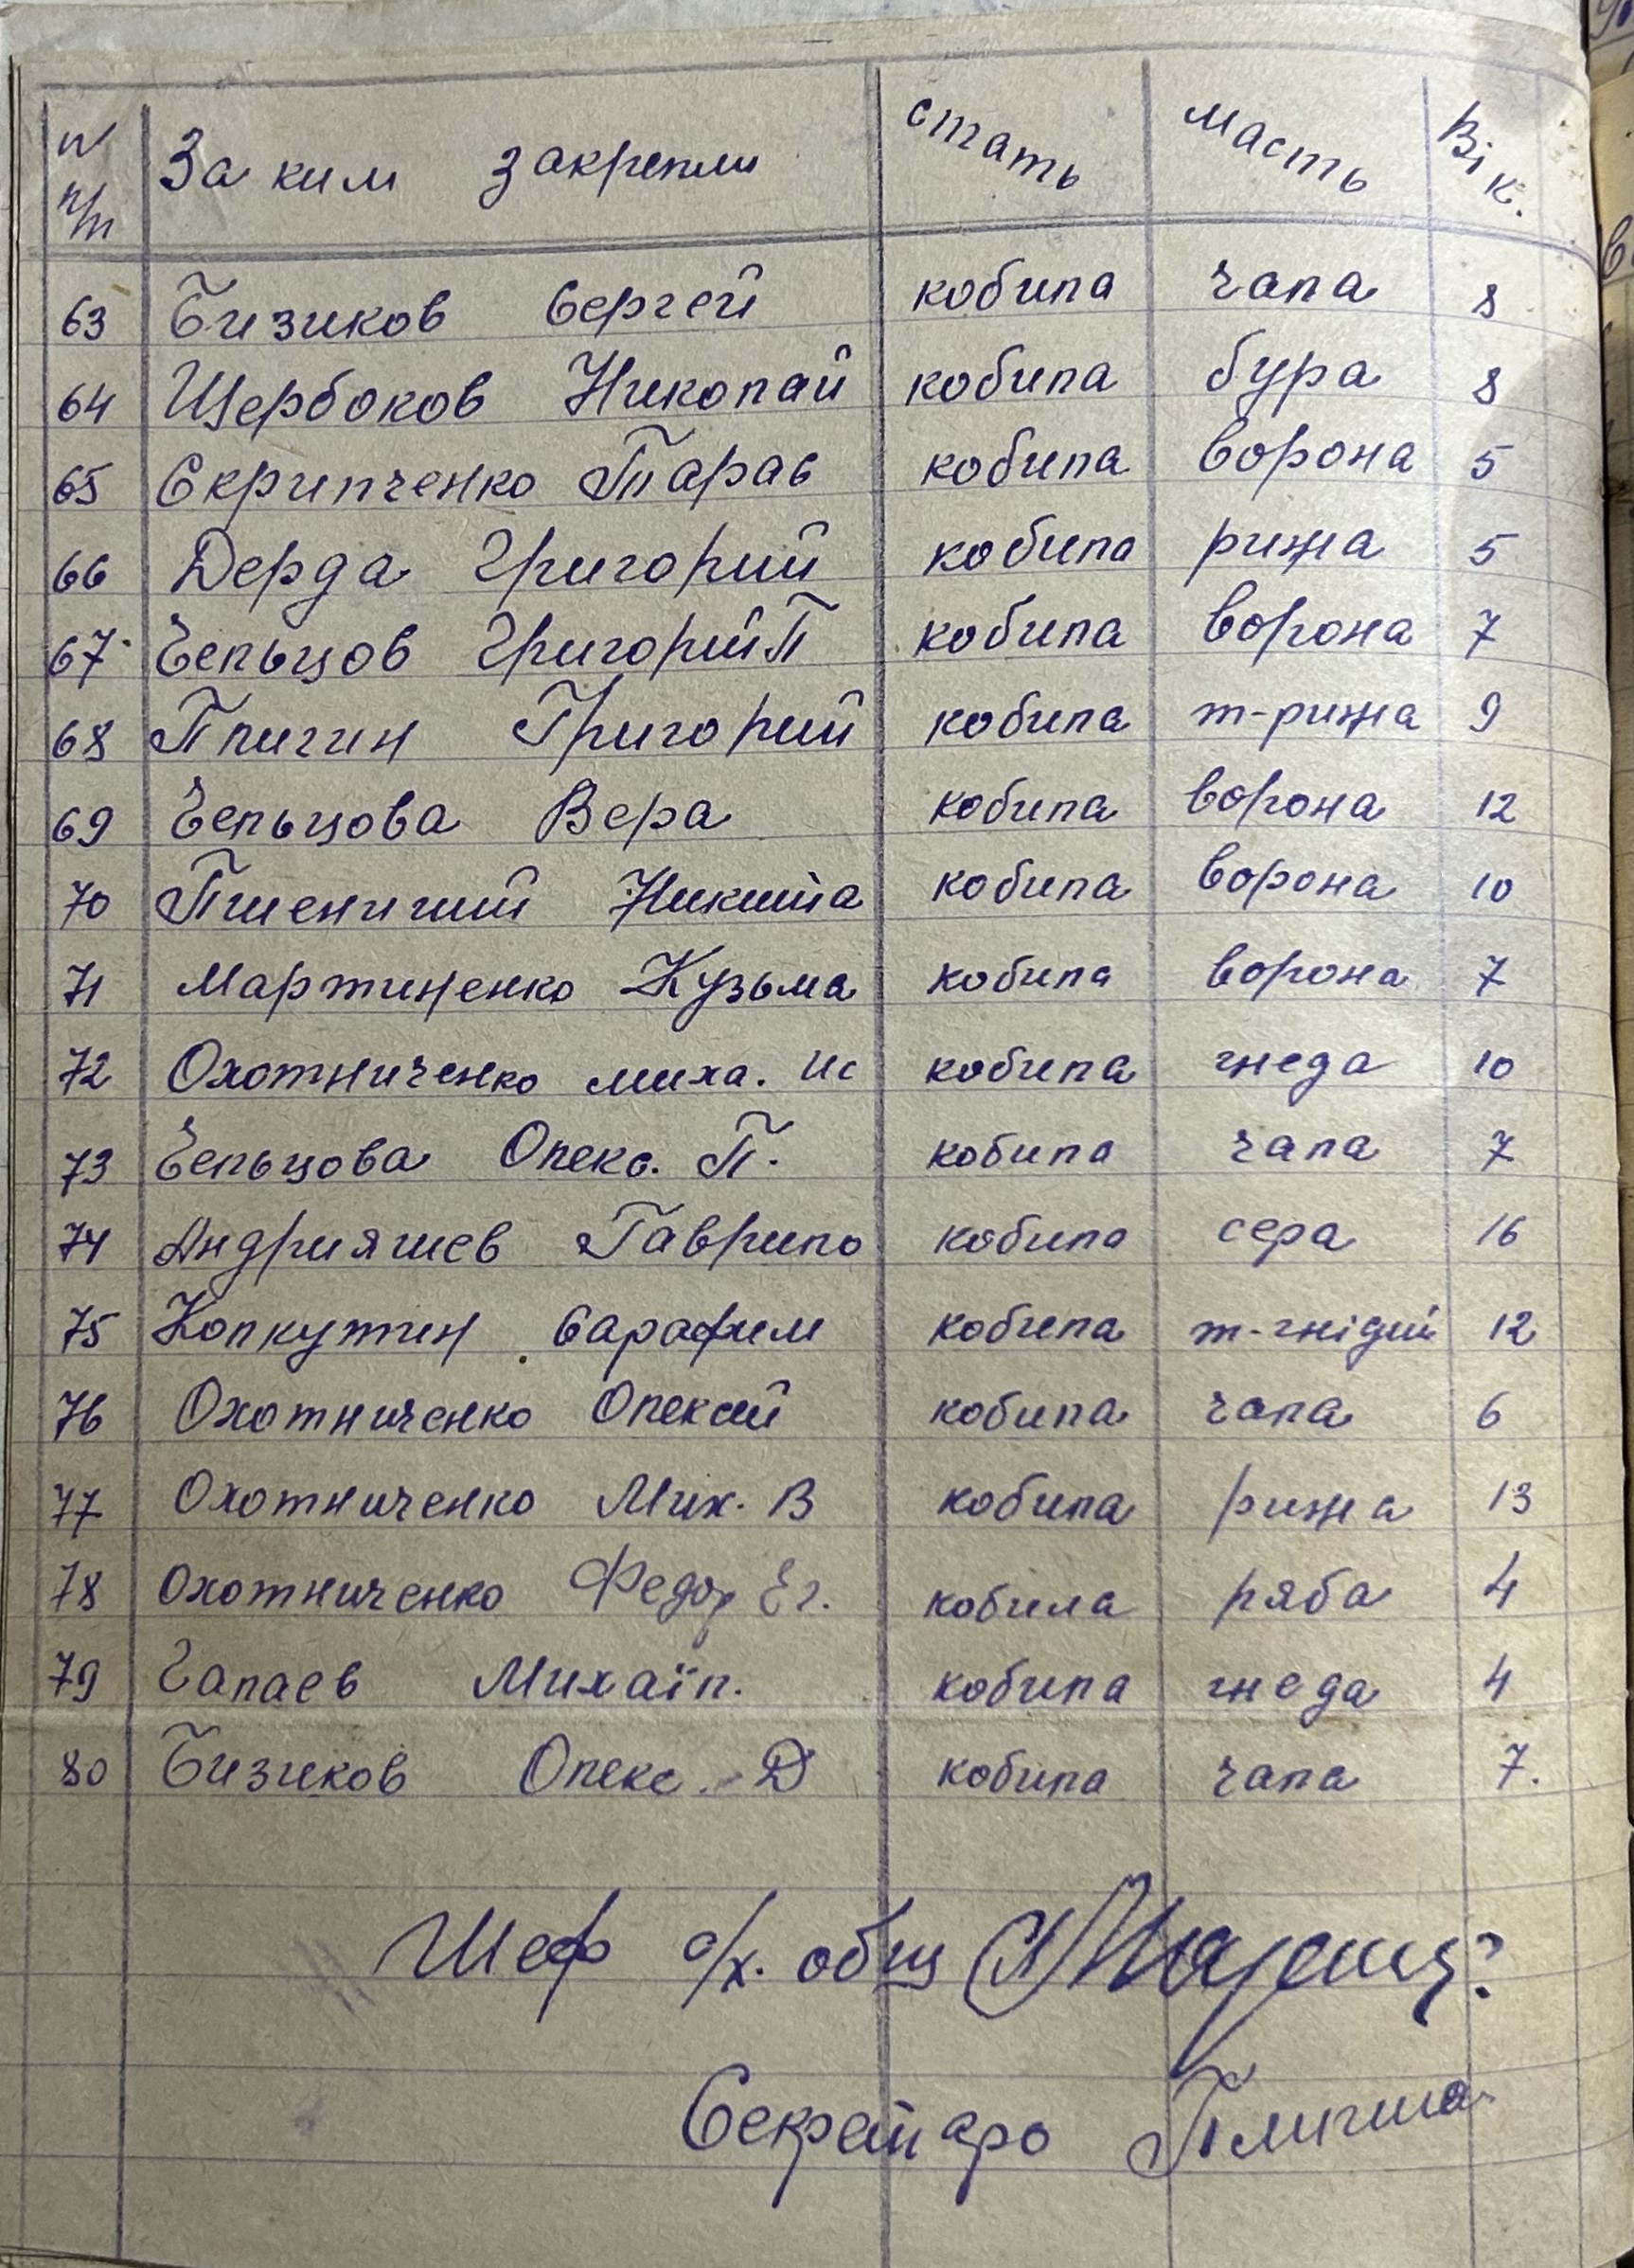 № п/п За ким закрепли стать масть Вік.
63 Бизиков Сергей кобила чала 8
64 Щербоков Николай кобила бура 8
65 Скрипченко Тарас кобила ворона 5
66 Дерда Григорий кобила рижа 5
67. Сельцов Григорий П кобила ворона 7
68 Плигин Григорий кобила т-рижа 9
69 Сельцова Вера кобила ворона 12
70 Пшеничний Никита кобила ворона 10
71 Мартиненко Кузьма кобила ворона 7
72 Охотниченко миха. Ис кобила гнеда 10
73 Сельцова Олекс. П. кобила чала 7
74 Андрияшев Гаврило кобила сера 16
75 Колкутин Сарафим кобила т-гнідий 12
76 Охотниченко Олексій кобила чала 6
77 Охотниченко Мих. В кобила рижа 13
78 Охотниченко Федор Ег. кобила ряба 4
79 Чапаев Михаїл. кобила гнеда 4
80 Бизиков Олекс. Д кобила чала 7.
Шеф с/х. общ
Секретарь Плигина